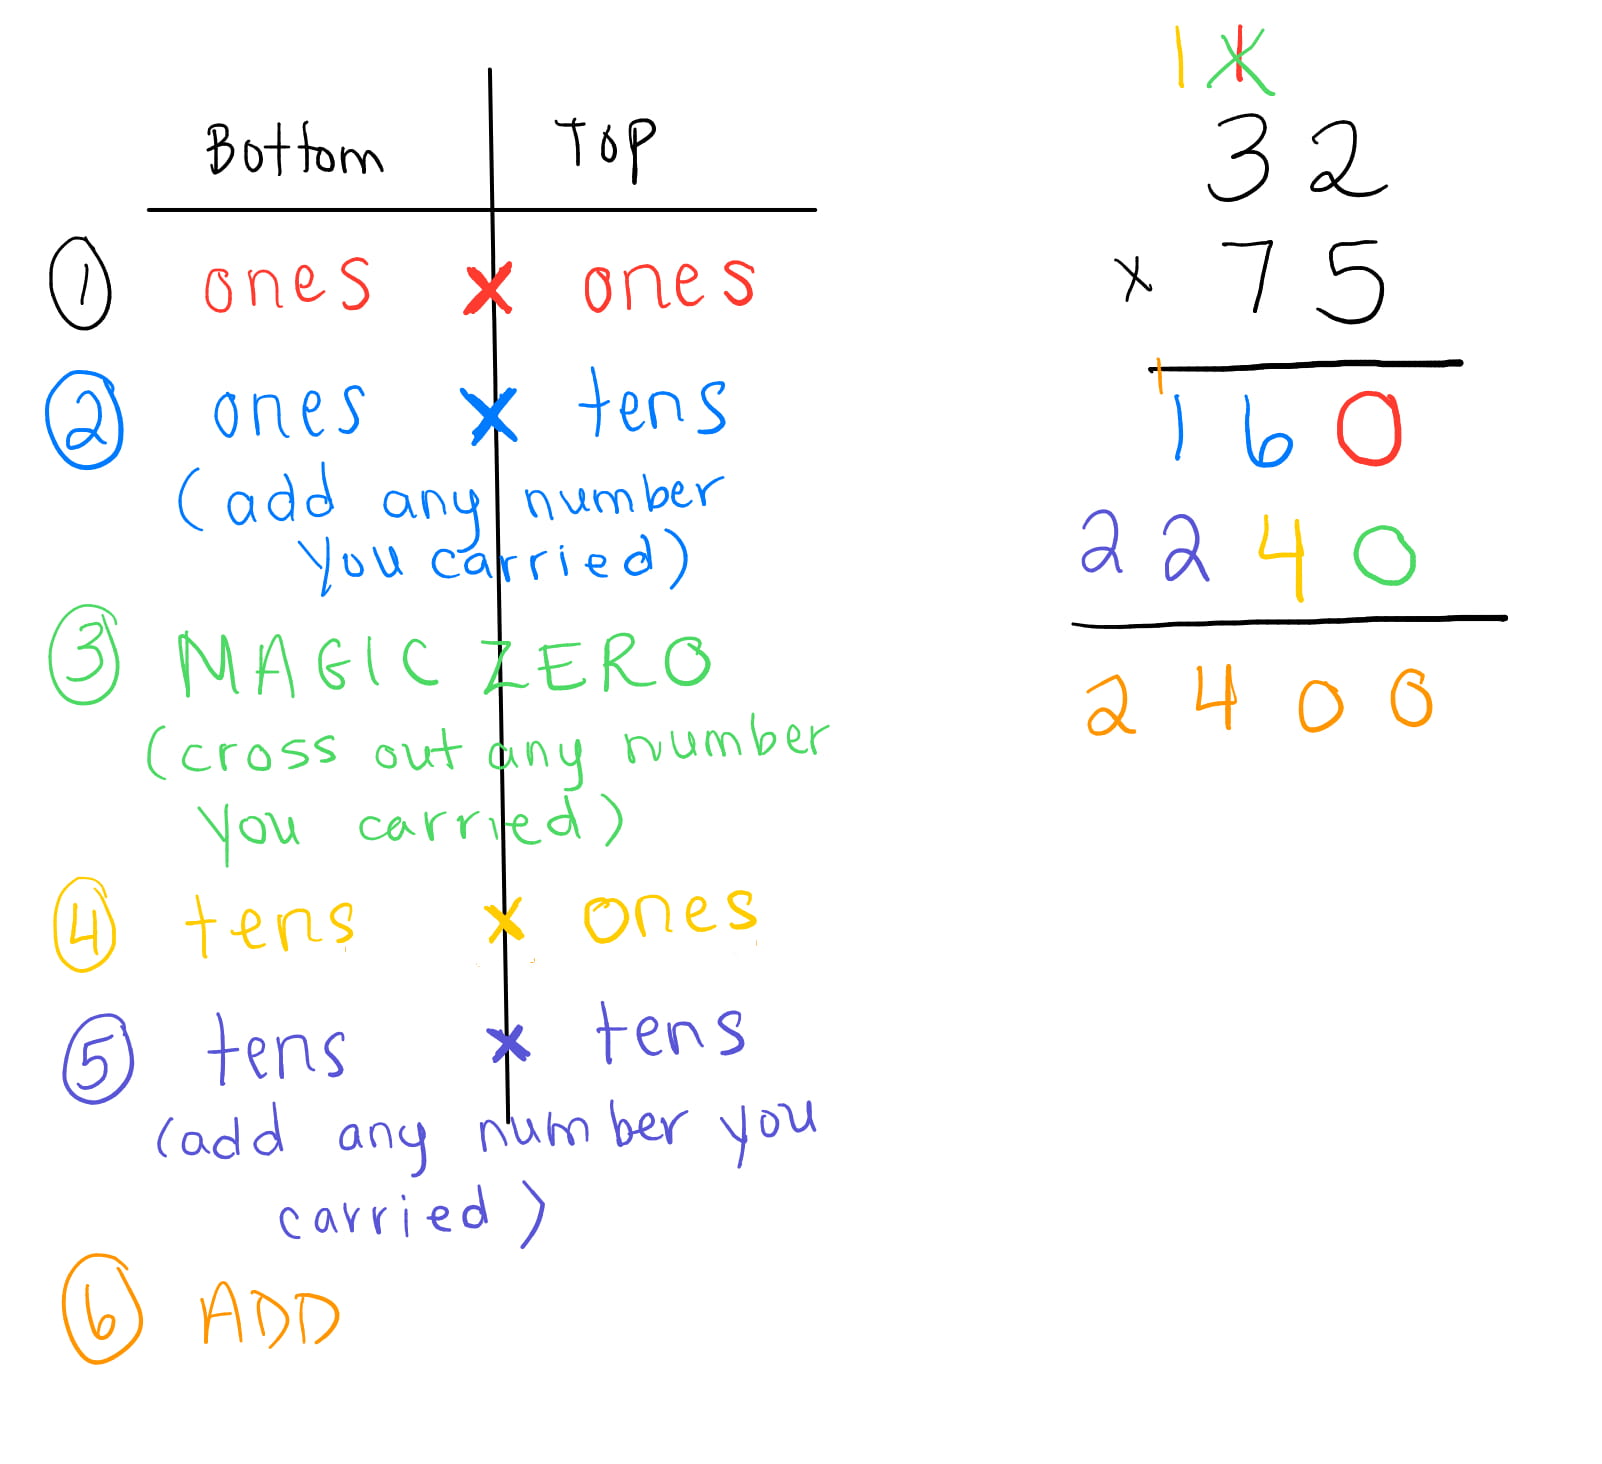 Bottom Top
① ones x ones
② ones x tens
(add any number
you carried)
③ MAGIC ZERO
(cross out any number
you carried)
④ tens x ones
⑤ tens x tens
(add any number you
carried)
⑥ ADD
1 1
32
x 75
1
160
2240
2400